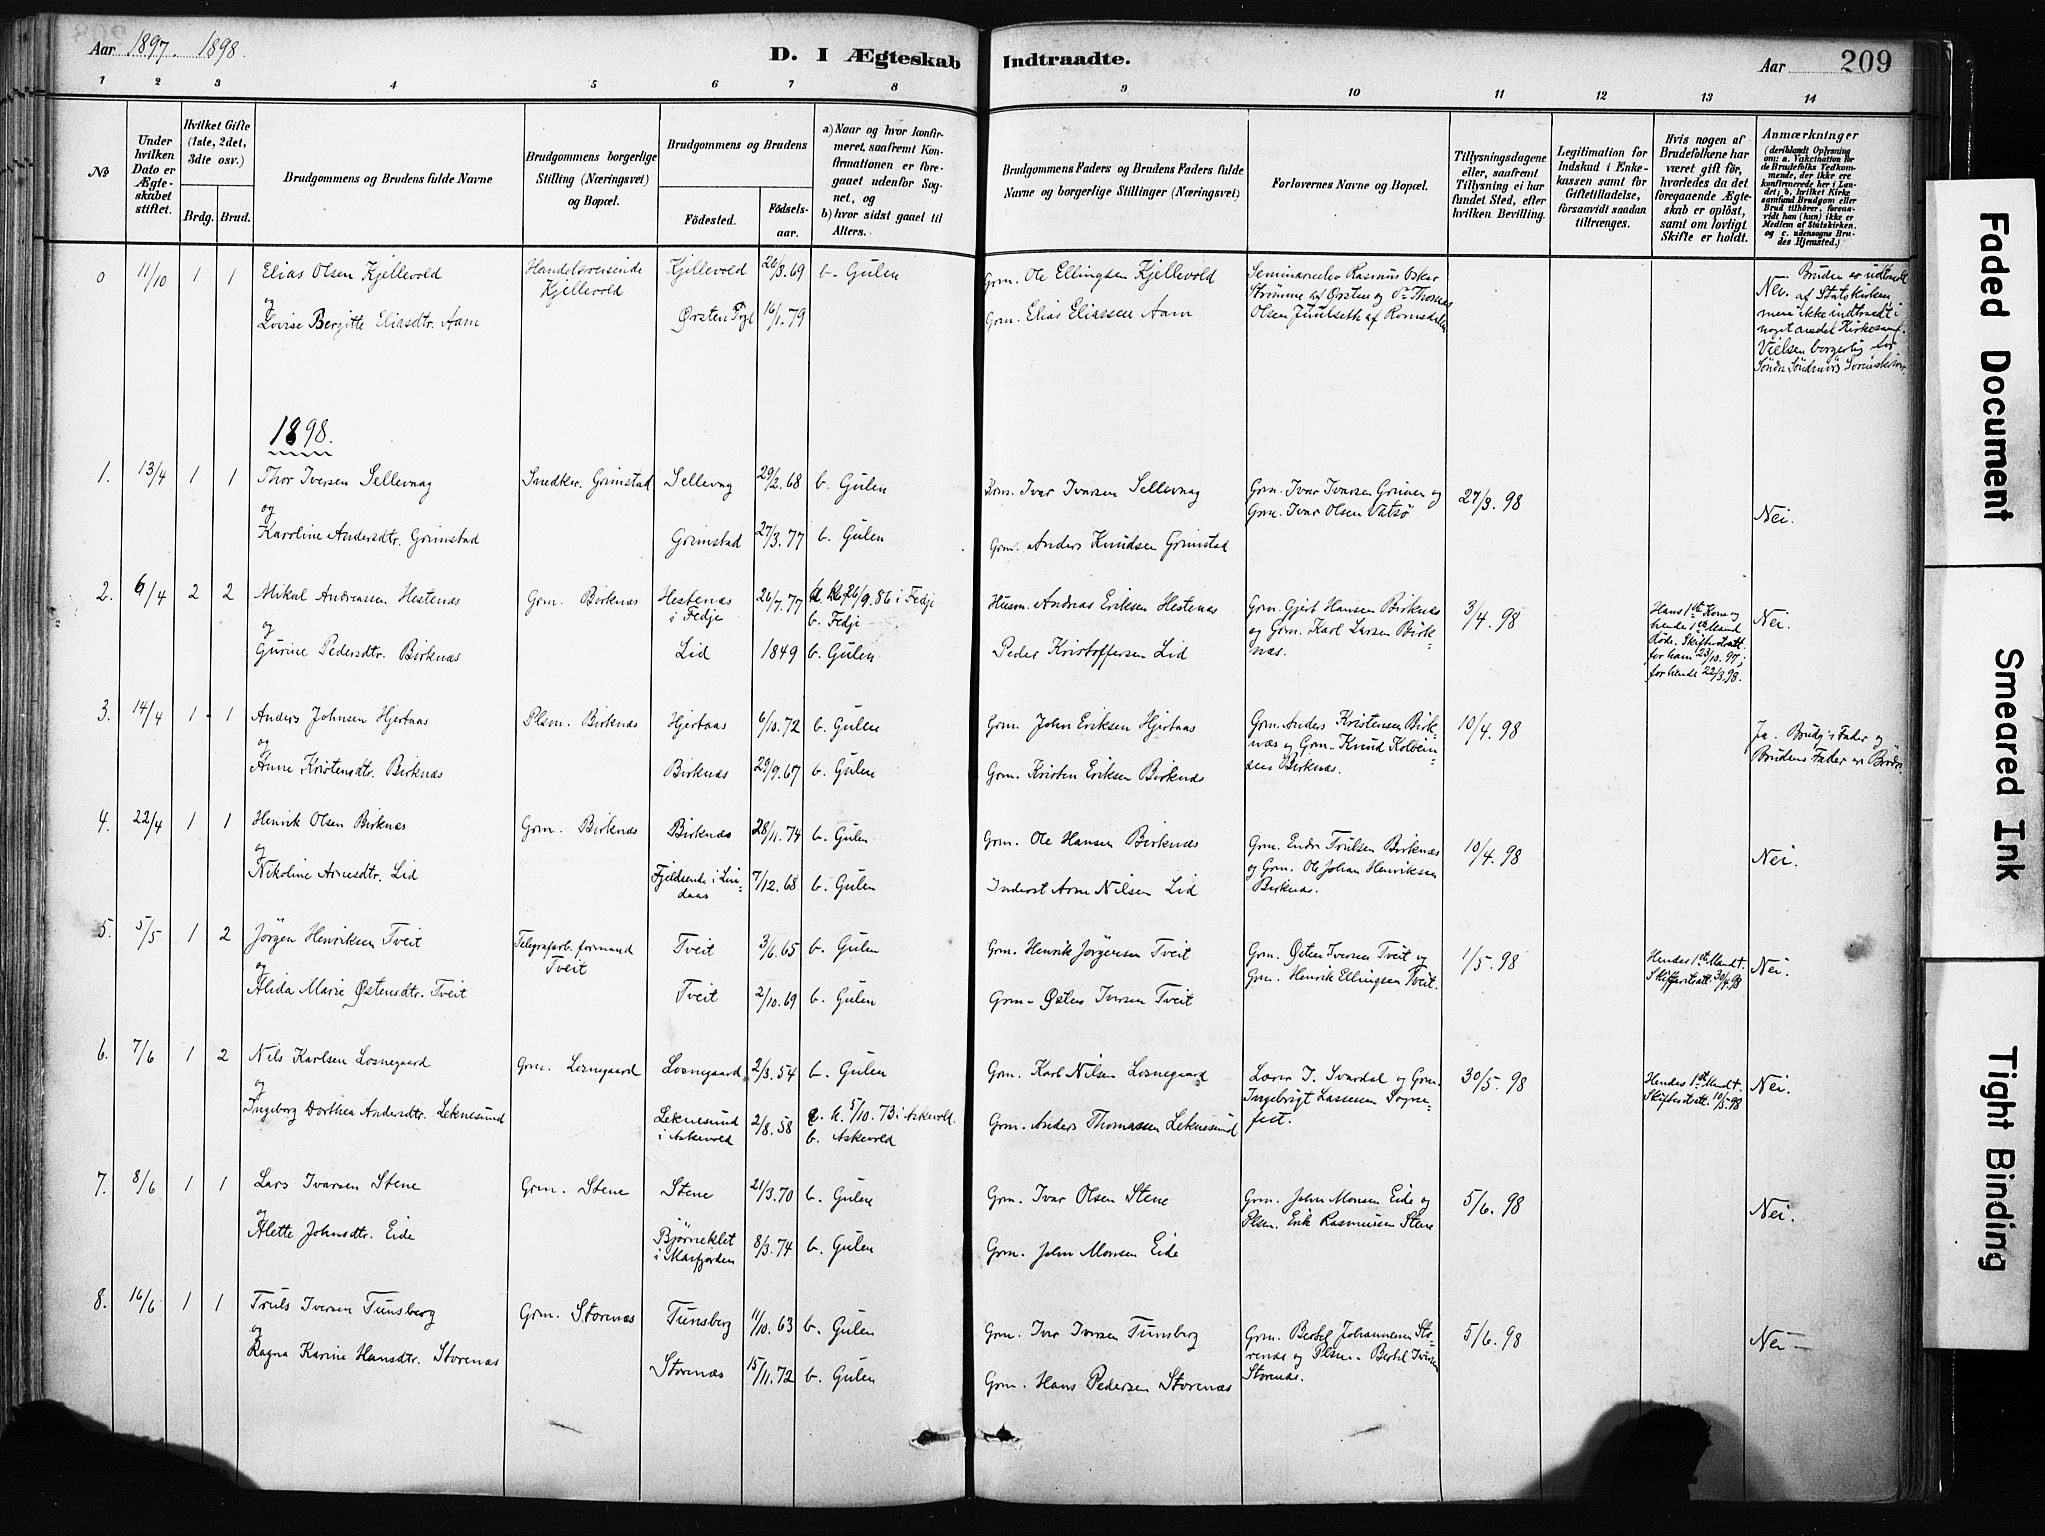 Aar 1897. 1898.
D. I Ægteskab Indtraadte.
Aar
209
1 2 3 4 5 6 7 8 9 10 11 12 13 14
No
Under hvilken Dato er Ægteskabet stiftet.
Hvilket Gifte (1ste, 2det, 3die osv.)
Brdg. Brud.
Brudgommens og Brudens fulde Navne
Brudgommens borgerlige Stilling (Næringsvei) og Bopæl.
Brudgommens og Brudens
Fødested.
Fødsels-aar.
a) Naar og hvor konfirmeret, saafremt Konfirmationen er foregaaet udenfor Sognet, og
b) hvor sidst gaaet til Alters.
Brudgommens Faders og Brudens Faders fulde Navne og borgerlige Stillinger (Næringsvei)
Forlovernes Navne og Bopæl.
Tillysningsdagene eller, saafremt Tillysning ei har fundet Sted, efter hvilken Bevilling.
Legitimation for Indskud i Enkekassen samt for Giftetilladelse, forsaavidt saadan tiltrænges.
Hvis nogen af Brudefolkene har været gift før, hvorledes da det foregaaende Ægteskab er opløst, samt om lovligt Skifte er holdt.
Anmærkninger (deriblandt Oplysning om: a. Vakcination for de Brudefolks Vedkommende, der ikke ere konfirmerede her i Landet; b. hvilket Kirkesamfund Brudgom eller Brud tilhører, forsaavidt han (hun) ikke er Medlem af Statskirken, og c. udensogns Brudes Hjemsted.)
0 11/10 1 1 Elias Olsen Kjellevold Handelsreisende Kjellevold Kjellevold 20/3.69 b. Gulen Grm. Ole Ellingsen Kjellevold Seminarelev Rasmus Oskar Nei. Bruden er udtraadt
og Strømme af Ørsten og Thomas af Statskirken
Lovise Bergitte Eliasdtr. Aam Ørsten 16/1.79 Grm. Elias Eliassen Aam Olsen Juulseth af Romsdalen men ikke indtraadt i
noget andet Kirkesamf.
Vielsen borgerlig for
1898.
1. 13/4 1 1 Thor Iversen Sellevaag Snedker Grimstad Sellevag 29/2.68 b. Gulen Grm. Ivar Ivarsen Sellevaag Grm. Ivar Ivarsen Grinen og 27/3.98 Nei.
og Grm. Ivar Olsen Vatsø
Karoline Andersdtr. Grimstad Grimstad 27/3.77 b. Gulen Grm. Anders Knudsen Grimstad
2. 6/4 2 2 Mikal Andreassen Hestenæs Grm. Birknæs Hestenæs i Fedje 26/7.77 26/9.86 i Fedje b. Fedje Husm. Andreas Eriksen Hestenæs Grm. Gjert Hansen Birknæs 3/4.98 Hans 1ste Kone og Nei.
og og Grm. Karl Larsen Birk- hendes 1ste Mand
Gurine Pedersdtr. Birknæs Lid 1849 b. Gulen Peder Kristoffersen Lid næs. døde. Skifteretsatt.
for ham 23/10.97;
for hende 22/3.98.
3. 14/4 1 1 Anders Johnsen Hjertaas Plsm. Birknæs Hjertaas 6/10.72 b. Gulen Grm. John Eriksen Hjertaas Grm. Anders Kristensen Birk- 10/4.98 Ja. Brudg.s Fader og
og næs og Grm. Knud Kolbein-
Anne Kristensdtr. Birknæs Birknæs 29/9.67 b. Gulen Grm. Kristen Eriksen Birknæs sen Birknæs. Brudens Fader er Brødre.
4. 22/4 1 1 Henrik Olsen Birknæs Grm. Birknæs Birknæs 28/11.74 b. Gulen Grm. Ole Hansen Birknæs Grm. Endre Trulsen Birknæs 10/4.98 Nei.
og og Grm. Ole Johan Henriksen
Nikoline Arnesdtr. Lid Fjeldsende i Lindaas 7/12.68 b. Gulen Inderst Arne Nilsen Lid Birknæs.
5. 5/5 1 2 Jörgen Henriksen Tveit Telegrafarb.formand Tveit Tveit 3/6.65 b. Gulen Grm. Henrik Jörgensen Tveit Grm. Østen Iversen Tveit og 1/5.98 Hendes 1ste Mand †. Nei.
og Grm. Henrik Ellingsen Tveit. Skifteretsatt. 30/4.98
Alida Marie Østensdtr. Tveit Tveit 2/10.69 b. Gulen Grm. Østen Iversen Tveit
6. 7/6 1 2 Nils Karlsen Losnegaard Grm. Losnegaard Losnegaard 2/3.54 b. Gulen Grm. Karl Nilsen Losnegaard Lærer J. Svardal og Grm. 30/5.98 Hendes 1ste Mand †. Nei.
og Ingebrigt Lassesen Sogne- Skifteretsatt. 10/5.98
Ingeborg Dorthea Andersdtr. Leknesund Leknesund i Askevold 2/8.58 a. k. 5/10.73 i Askevold. b. Askevold Grm. Anders Thomassen Leknesund fest.
7. 8/6 1 1 Lars Ivarsen Stene Grm. Stene Stene 21/3.70 b. Gulen Grm. Ivar Olsen Stene Grm. John Monsen Eide og 5/6.98 Nei.
og Plsm. Erik Rasmussen Stene
Alette Johnsdtr. Eide Bjørneklet i Masfjorden 8/3.74 b. Gulen Grm. John Monsen Eide
8. 16/6 1 1 Truls Iversen Tunsberg Grm. Storenæs Tunsberg 11/10.63 b. Gulen Grm. Iver Iversen Tunsberg Grm. Bertel Johannesen Sto- 5/6.98 Nei
og renæs og Plsm. Bertel Iversen
Ragna Karine Hansdtr. Storenæs Storenæs 15/11.72 b. Gulen Grm. Hans Pedersen Storenæs Storenæs.
Faded Document
Smeared Ink
Tight Binding